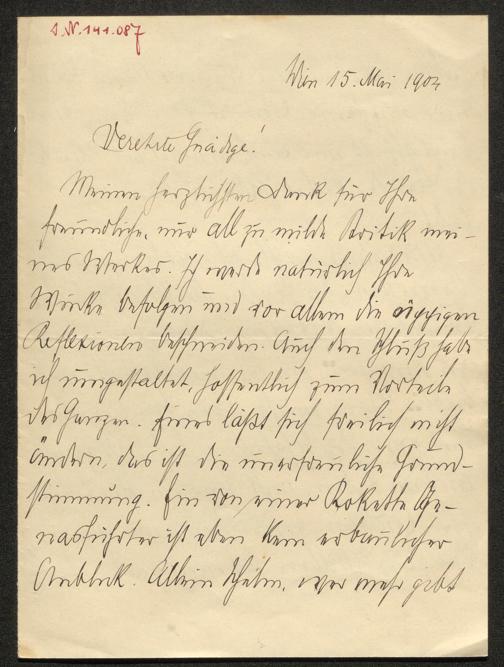 I.N. 141.087
Wien 15. Mai 1902
Verehrte Gnädige!
Meinen herzlichsten Dank für Ihre
freundliche, nur all zu milde Kritik mei-
nes Werkes. Ich werde natürlich Ihre
Winke befolgen und vor allem die üppigen
Reflexionen beschneiden. Auch den Schluß habe
ich umgestaltet, hoffentlich zum Vorteile
des Ganzen. Eines läßt sich freilich nicht
ändern, das ist die unerfreuliche Grund-
stimmung. Ein von einer Kokette Ge-
nasführter ist eben kein erbaulicher
Anblick. Allein Schelm, wer mehr gibt